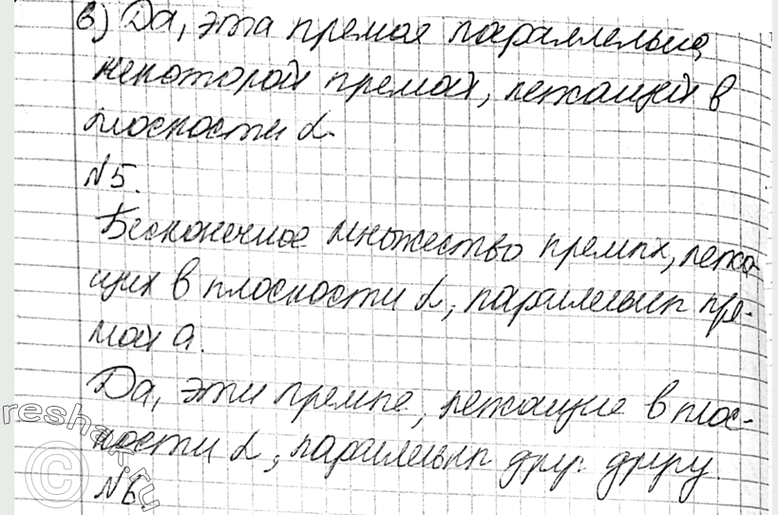 в) Да, эта прямая параллельна
некоторой прямой, лежащей в
плоскости α.
№5.
Бесконечное множество прямых, лежа-
щих в плоскости α, параллельных пря-
мой а.
Да, эти прямые, лежащие в плос-
кости α, параллельны друг другу.
№6
reshak.ru
©